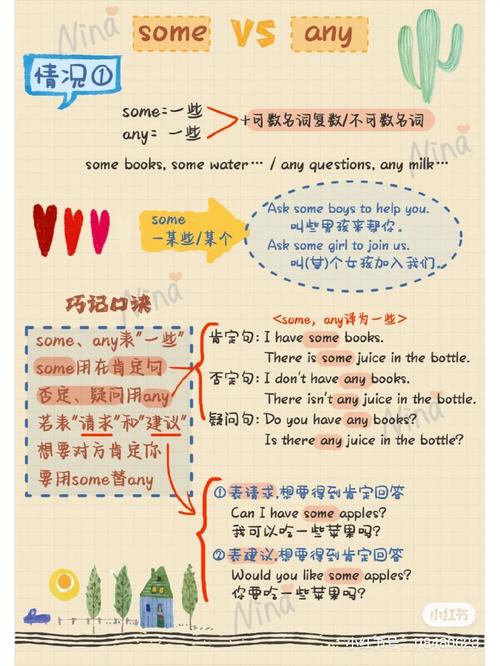 some VS any
情况①
some=一些
any= 一些
+可数名词复数/不可数名词
some books, some water… / any questions, any milk…
some
一某些/某个
Ask some boys to help you.
叫些男孩来帮你。
Ask some girl to join us.
叫(某)个女孩加入我们。
巧记口诀
some、any表"一些"
some用在肯定句
否定、疑问用any
若表"请求"和"建议"
想要对方肯定你
要用some替any
<some, any译为一些>
肯定句: I have some books.
There is some juice in the bottle.
否定句: I don't have any books.
There isn't any juice in the bottle.
疑问句: Do you have any books?
Is there any juice in the bottle?
①表请求,想要得到肯定回答
Can I have some apples?
我可以吃一些苹果吗?
②表建议,想要得到肯定回答
Would you like some apples?
你要吃一些苹果吗?
Nina
Nina
Nina
Nina
Nina
小红书